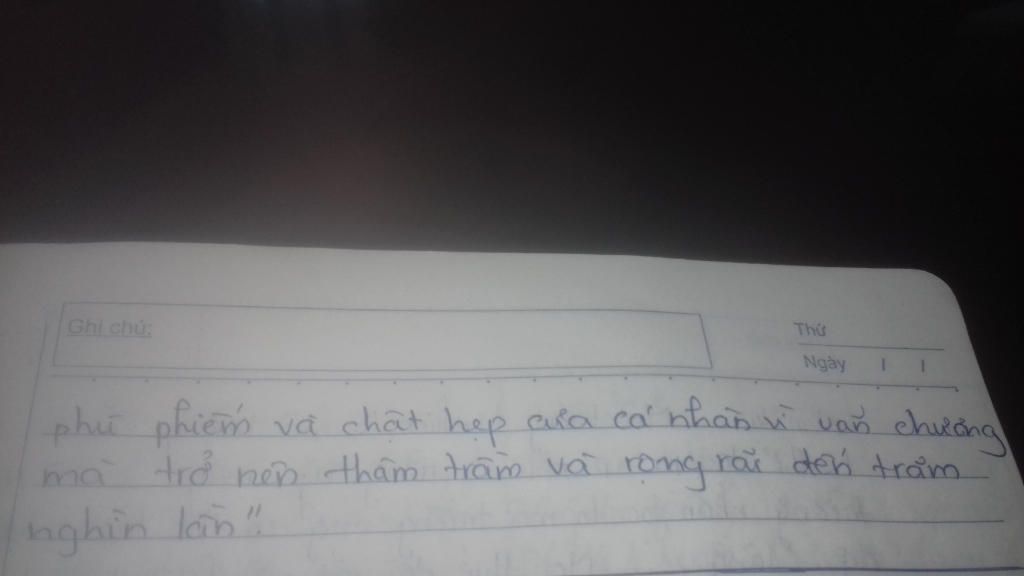 Ghi chú:
Thứ
Ngày / /
phù phiếm và chật hẹp của cá nhân vì văn chương
mà trở nên thâm trầm và rộng rãi đến trăm
nghìn lần".